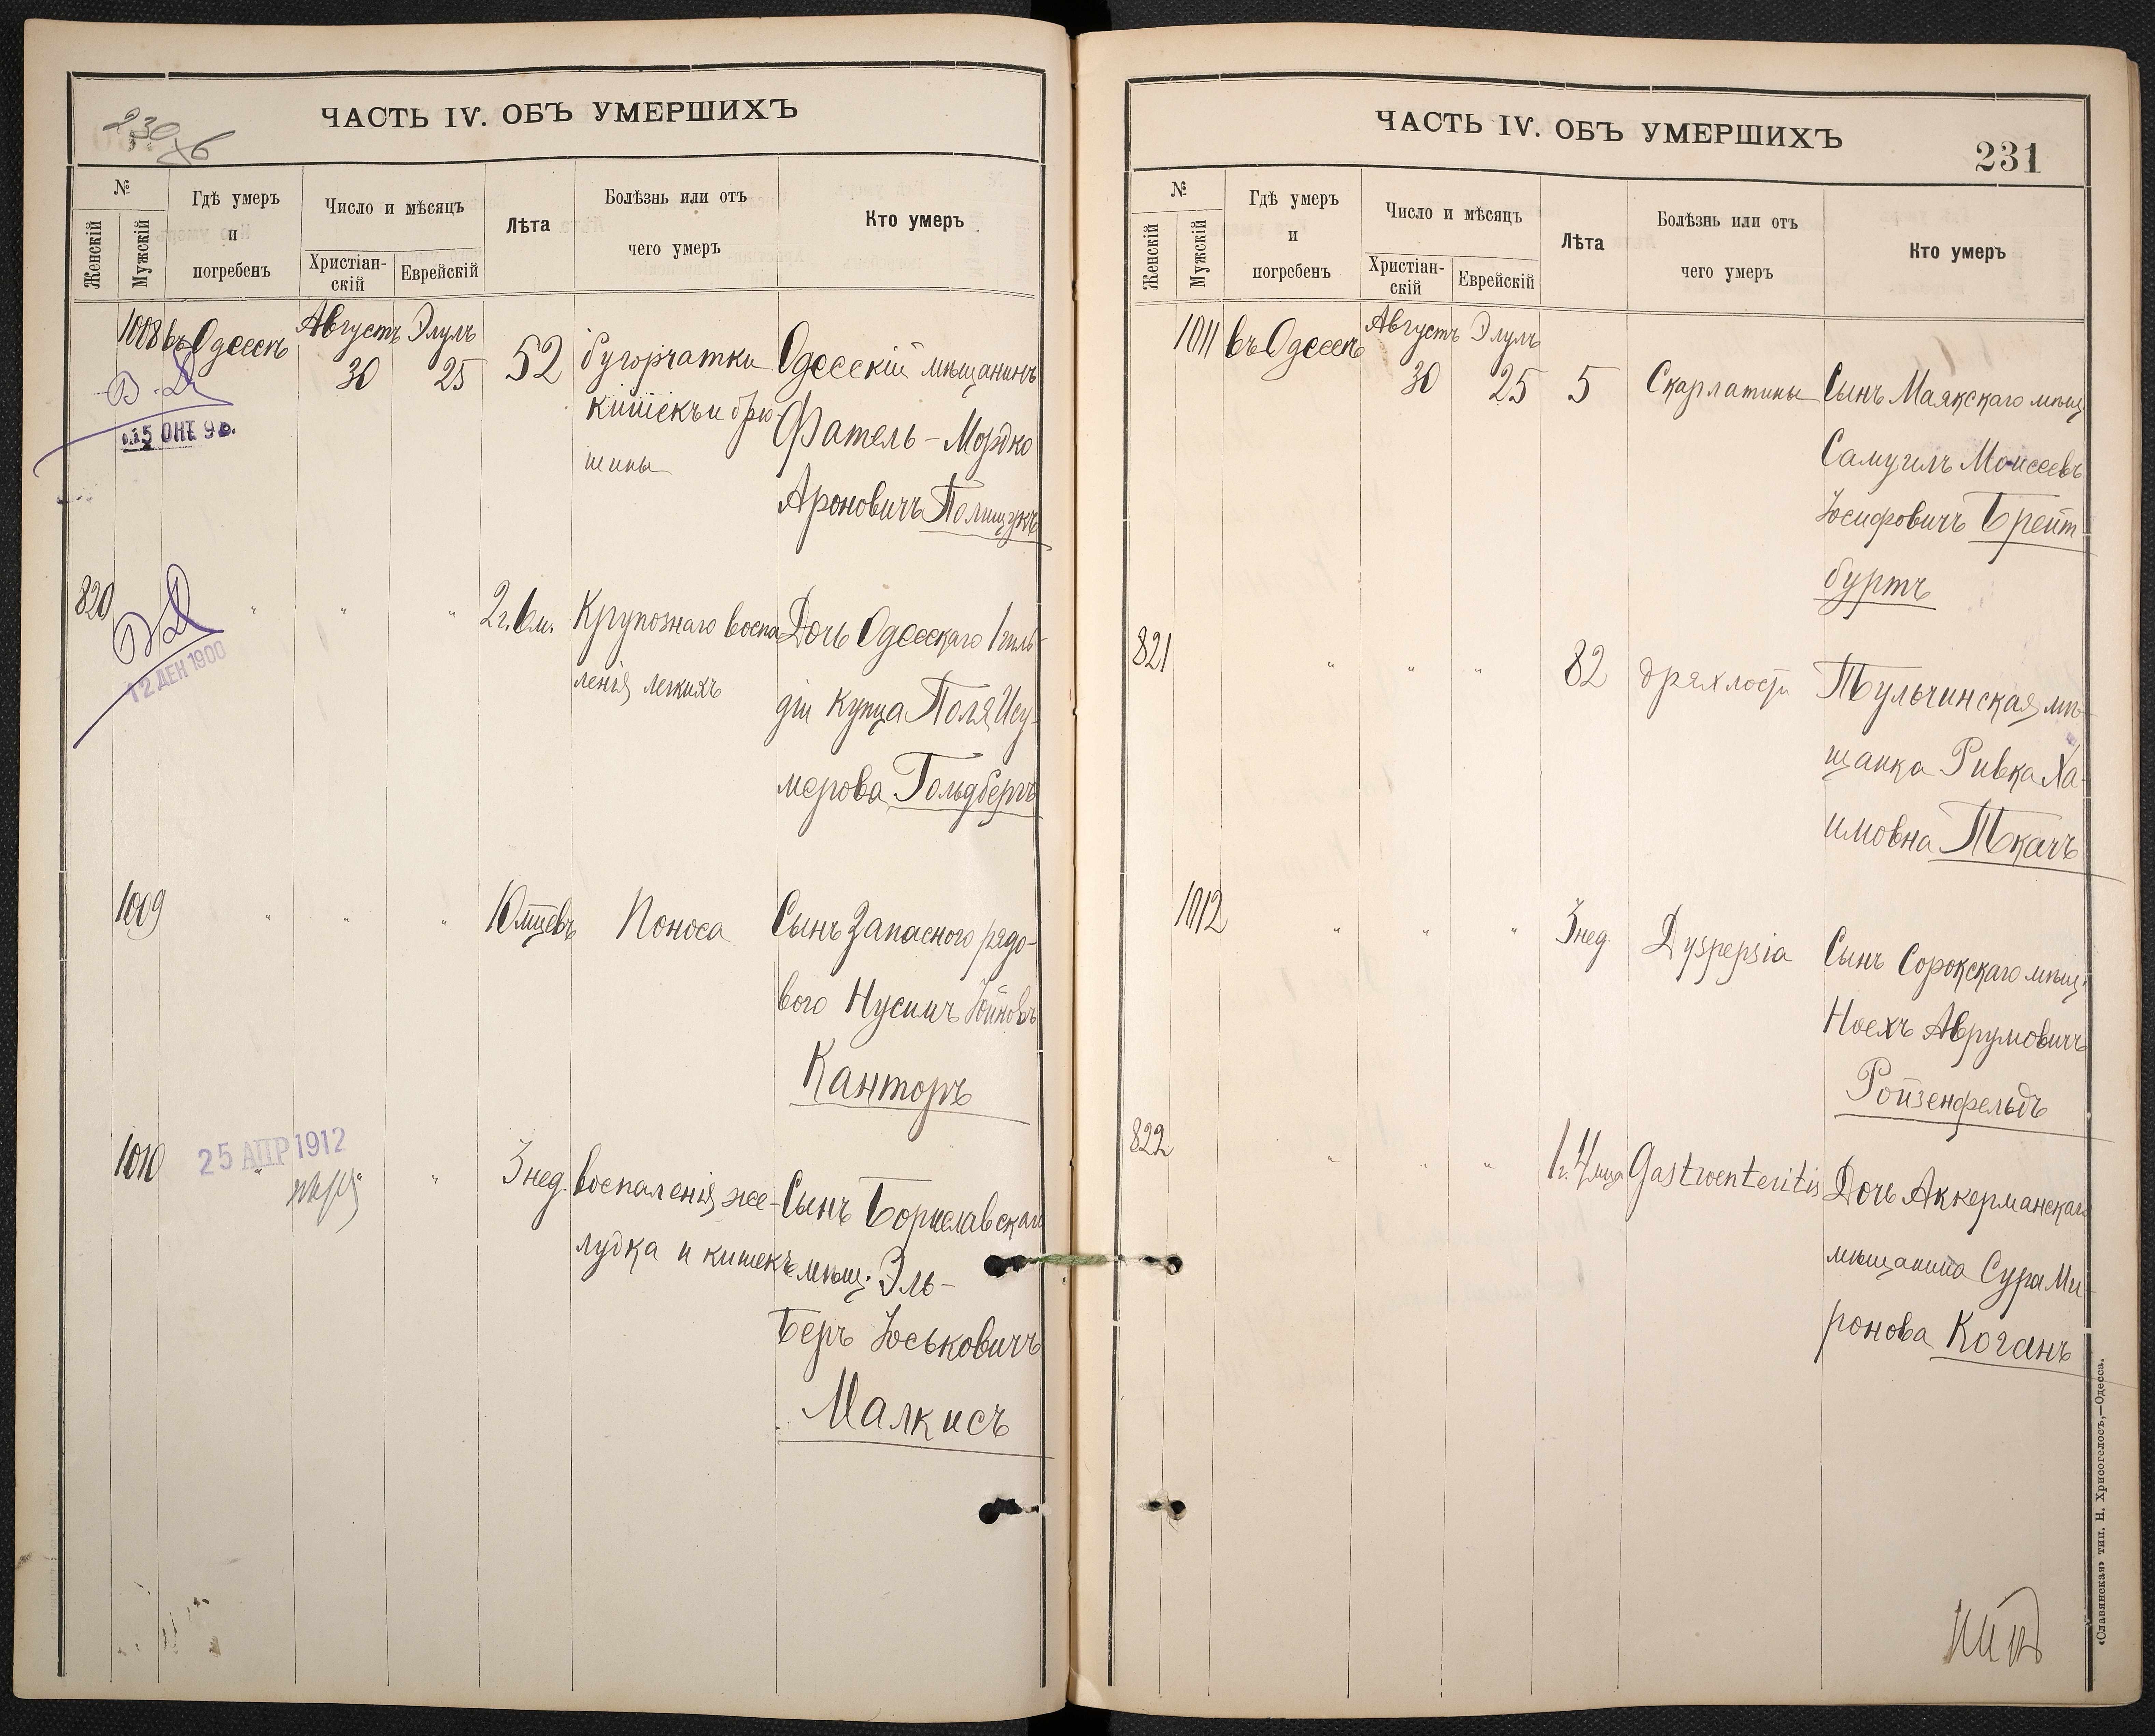 ЧАСТЬ IV. ОБЪ УМЕРШИХЪ
№
Женскій
Мужскій
Гдѣ умеръ
и
погребенъ
Число и мѣсяцъ
Христіан-
скій
Еврейскій
Лѣта
Болѣзнь или отъ
чего умеръ
Кто умеръ
1008
въ Одессѣ
Августъ
30
Элулъ
25
52
бугорчатки
кишекъ и брю
шины
Одесскій мѣщанинъ
Фатель-Мордко
Ароновичъ Полищукъ
820
" " "
2 г. 6 м.
Крупознаго воспа
ленія легкихъ
Дочь Одесскаго 1 гиль
діи купца Поля Ису-
мерова Гольдбергъ
12 ДЕК 1900
1009
" " "
10 мцевъ
Поноса
Сынъ Запаснаго рядо-
вого Нусимъ Іойновъ
Канторъ
1010
25 АПР 1912
" "
3 нед.
воспаленія же-
лудка и кишекъ
Сынъ Бориславскаго
мѣщ. Эль-
Беръ Іоськовичъ
Малкисъ
ЧАСТЬ IV. ОБЪ УМЕРШИХЪ
231
№
Женскій
Мужскій
Гдѣ умеръ
и
погребенъ
Число и мѣсяцъ
Христіан-
скій
Еврейскій
Лѣта
Болѣзнь или отъ
чего умеръ
Кто умеръ
1011
въ Одессѣ
Августъ
30
Элулъ
25
5
Скарлатины
Сынъ Маякскаго мѣщ
Самуилъ Моисеевъ
Іосифовичъ Брейт
буртъ
821
" " "
82
дряхлости
Тульчинская мѣ-
щанка Ривка Ха-
имовна Ткачъ
1012
" " "
3 нед
Dyspepsia
Сынъ Сорокскаго мѣщ.
Ноехъ Аврумовичъ
Ройзенфельдъ
822
" " "
1 г. 4 мца
Gastroenteritis
Дочь Аккерманскаго
мѣщанина Сура Ми-
ронова Коганъ
«Славянская» тип. Н. Хрисогелосъ,—Одесса.